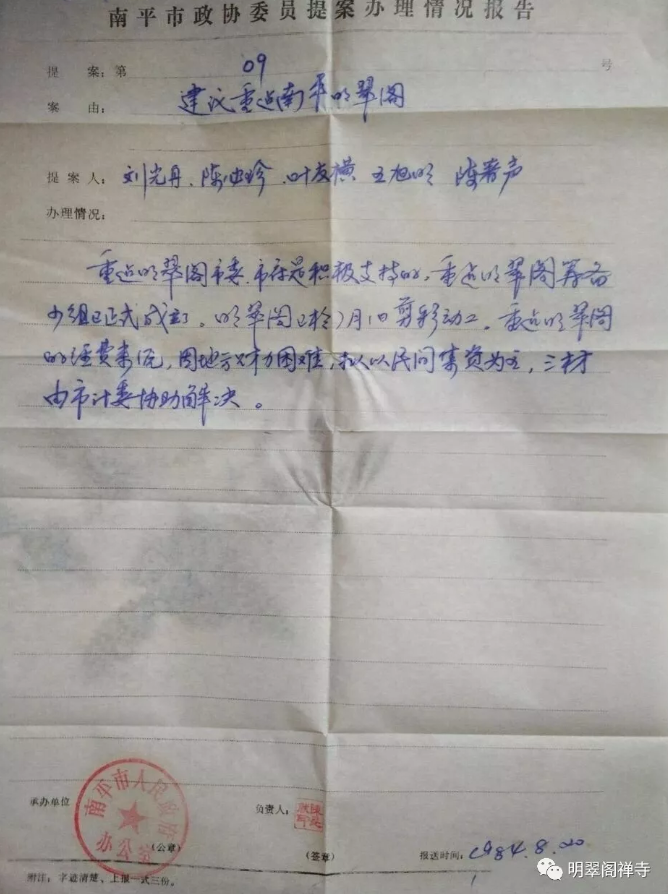 南平市政协委员提案办理情况报告
提案:第 09 号
案由: 建议重造南平明翠阁
提案人: 刘光丹、陈 珍、叶友横 王旭明 陈春声
办理情况:
重造明翠阁市委、市府是积极支持的,重造明翠阁筹备
小组已正式成立。明翠阁已于7月1日剪彩动工。重造明翠阁
的经费来源,因地方财力困难,拟以民间集资为主,三材
由市计委协助解决。
南平市人民政府
办公室
承办单位 (公章) 负责人: (签章) 报送时间: 1984.8.20
附注:字迹清楚、上报一式三份。
明翠阁禅寺